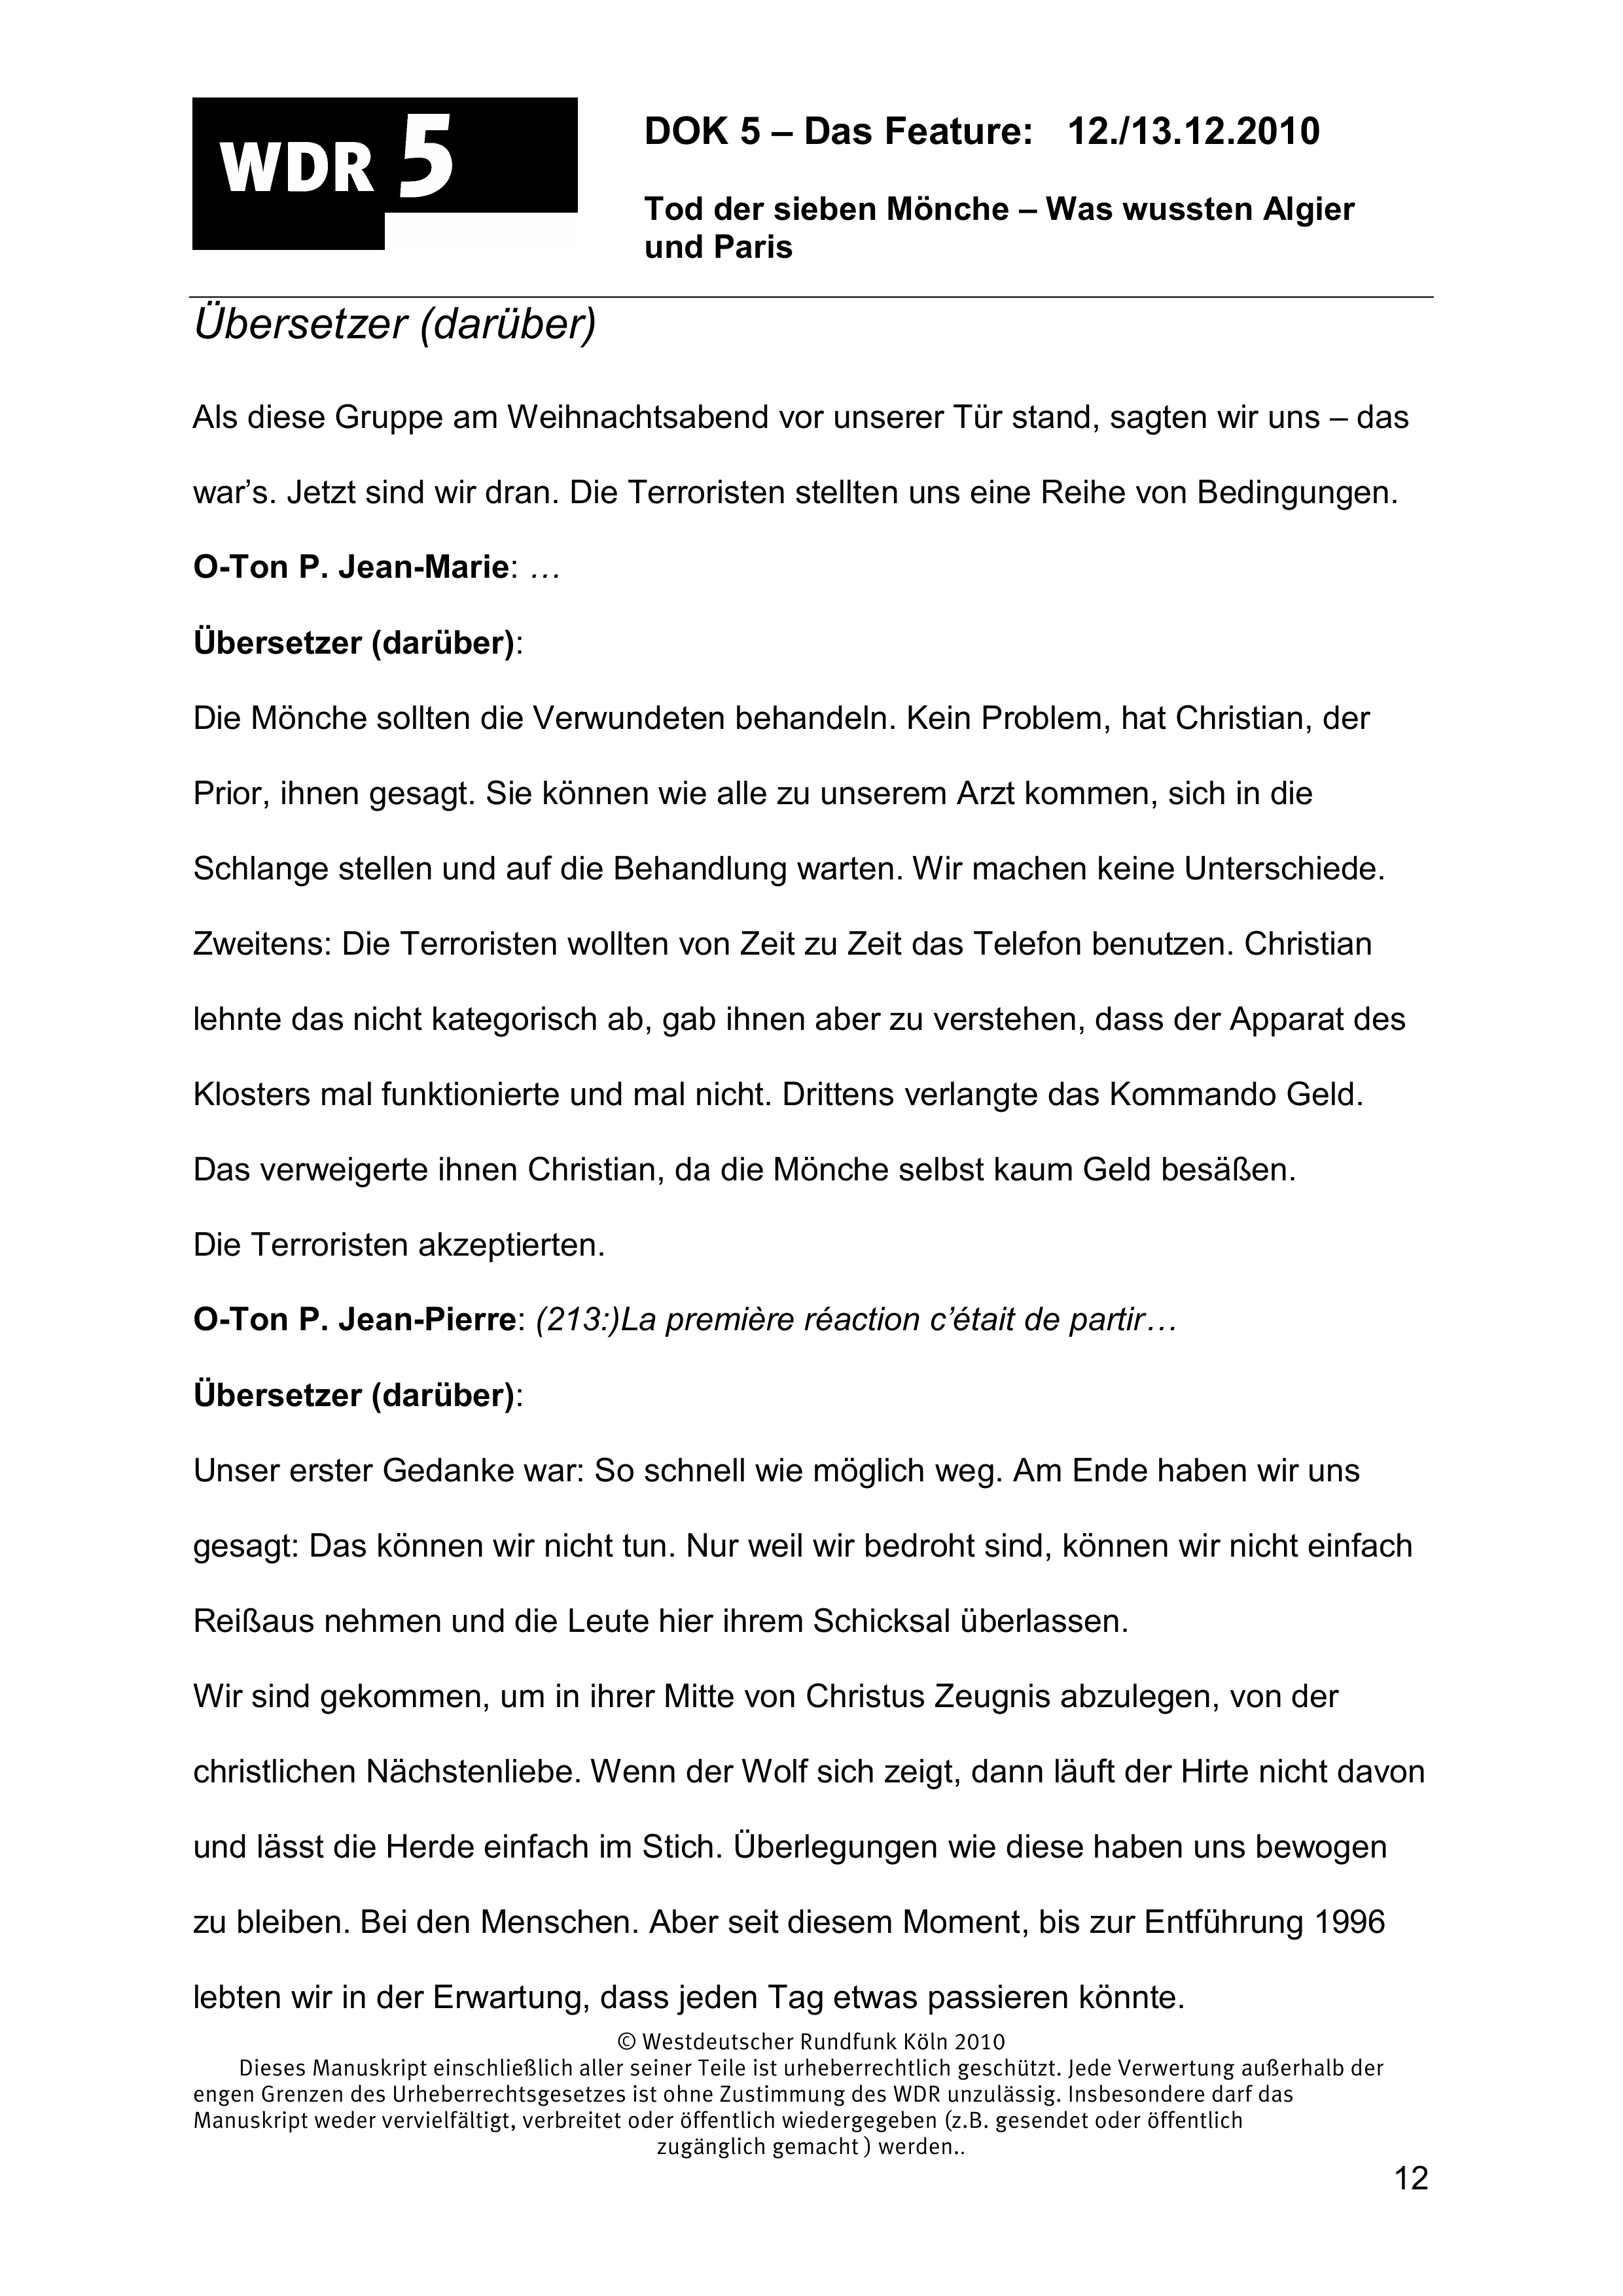 WDR 5
DOK 5 – Das Feature: 12./13.12.2010
Tod der sieben Mönche – Was wussten Algier
und Paris
Übersetzer (darüber)
Als diese Gruppe am Weihnachtsabend vor unserer Tür stand, sagten wir uns – das
war’s. Jetzt sind wir dran. Die Terroristen stellten uns eine Reihe von Bedingungen.
O-Ton P. Jean-Marie: …
Übersetzer (darüber):
Die Mönche sollten die Verwundeten behandeln. Kein Problem, hat Christian, der
Prior, ihnen gesagt. Sie können wie alle zu unserem Arzt kommen, sich in die
Schlange stellen und auf die Behandlung warten. Wir machen keine Unterschiede.
Zweitens: Die Terroristen wollten von Zeit zu Zeit das Telefon benutzen. Christian
lehnte das nicht kategorisch ab, gab ihnen aber zu verstehen, dass der Apparat des
Klosters mal funktionierte und mal nicht. Drittens verlangte das Kommando Geld.
Das verweigerte ihnen Christian, da die Mönche selbst kaum Geld besäßen.
Die Terroristen akzeptierten.
O-Ton P. Jean-Pierre: (213:)La première réaction c’était de partir…
Übersetzer (darüber):
Unser erster Gedanke war: So schnell wie möglich weg. Am Ende haben wir uns
gesagt: Das können wir nicht tun. Nur weil wir bedroht sind, können wir nicht einfach
Reißaus nehmen und die Leute hier ihrem Schicksal überlassen.
Wir sind gekommen, um in ihrer Mitte von Christus Zeugnis abzulegen, von der
christlichen Nächstenliebe. Wenn der Wolf sich zeigt, dann läuft der Hirte nicht davon
und lässt die Herde einfach im Stich. Überlegungen wie diese haben uns bewogen
zu bleiben. Bei den Menschen. Aber seit diesem Moment, bis zur Entführung 1996
lebten wir in der Erwartung, dass jeden Tag etwas passieren könnte.
© Westdeutscher Rundfunk Köln 2010
Dieses Manuskript einschließlich aller seiner Teile ist urheberrechtlich geschützt. Jede Verwertung außerhalb der
engen Grenzen des Urheberrechtsgesetzes ist ohne Zustimmung des WDR unzulässig. Insbesondere darf das
Manuskript weder vervielfältigt, verbreitet oder öffentlich wiedergegeben (z.B. gesendet oder öffentlich
zugänglich gemacht ) werden..
12